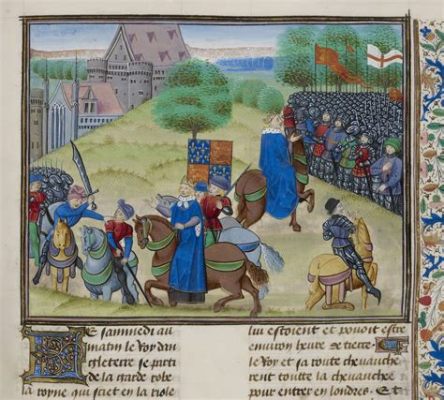 LE samnedi au
matin le Roy dan
gleterre se parti
de la garde robe
la royne qui siet en la riole
lui estoient et pouoit estre
environ heure de tierce
le Roy et sa route chevauche
rent toutte la chevauchee
pour entrer en londres. Et